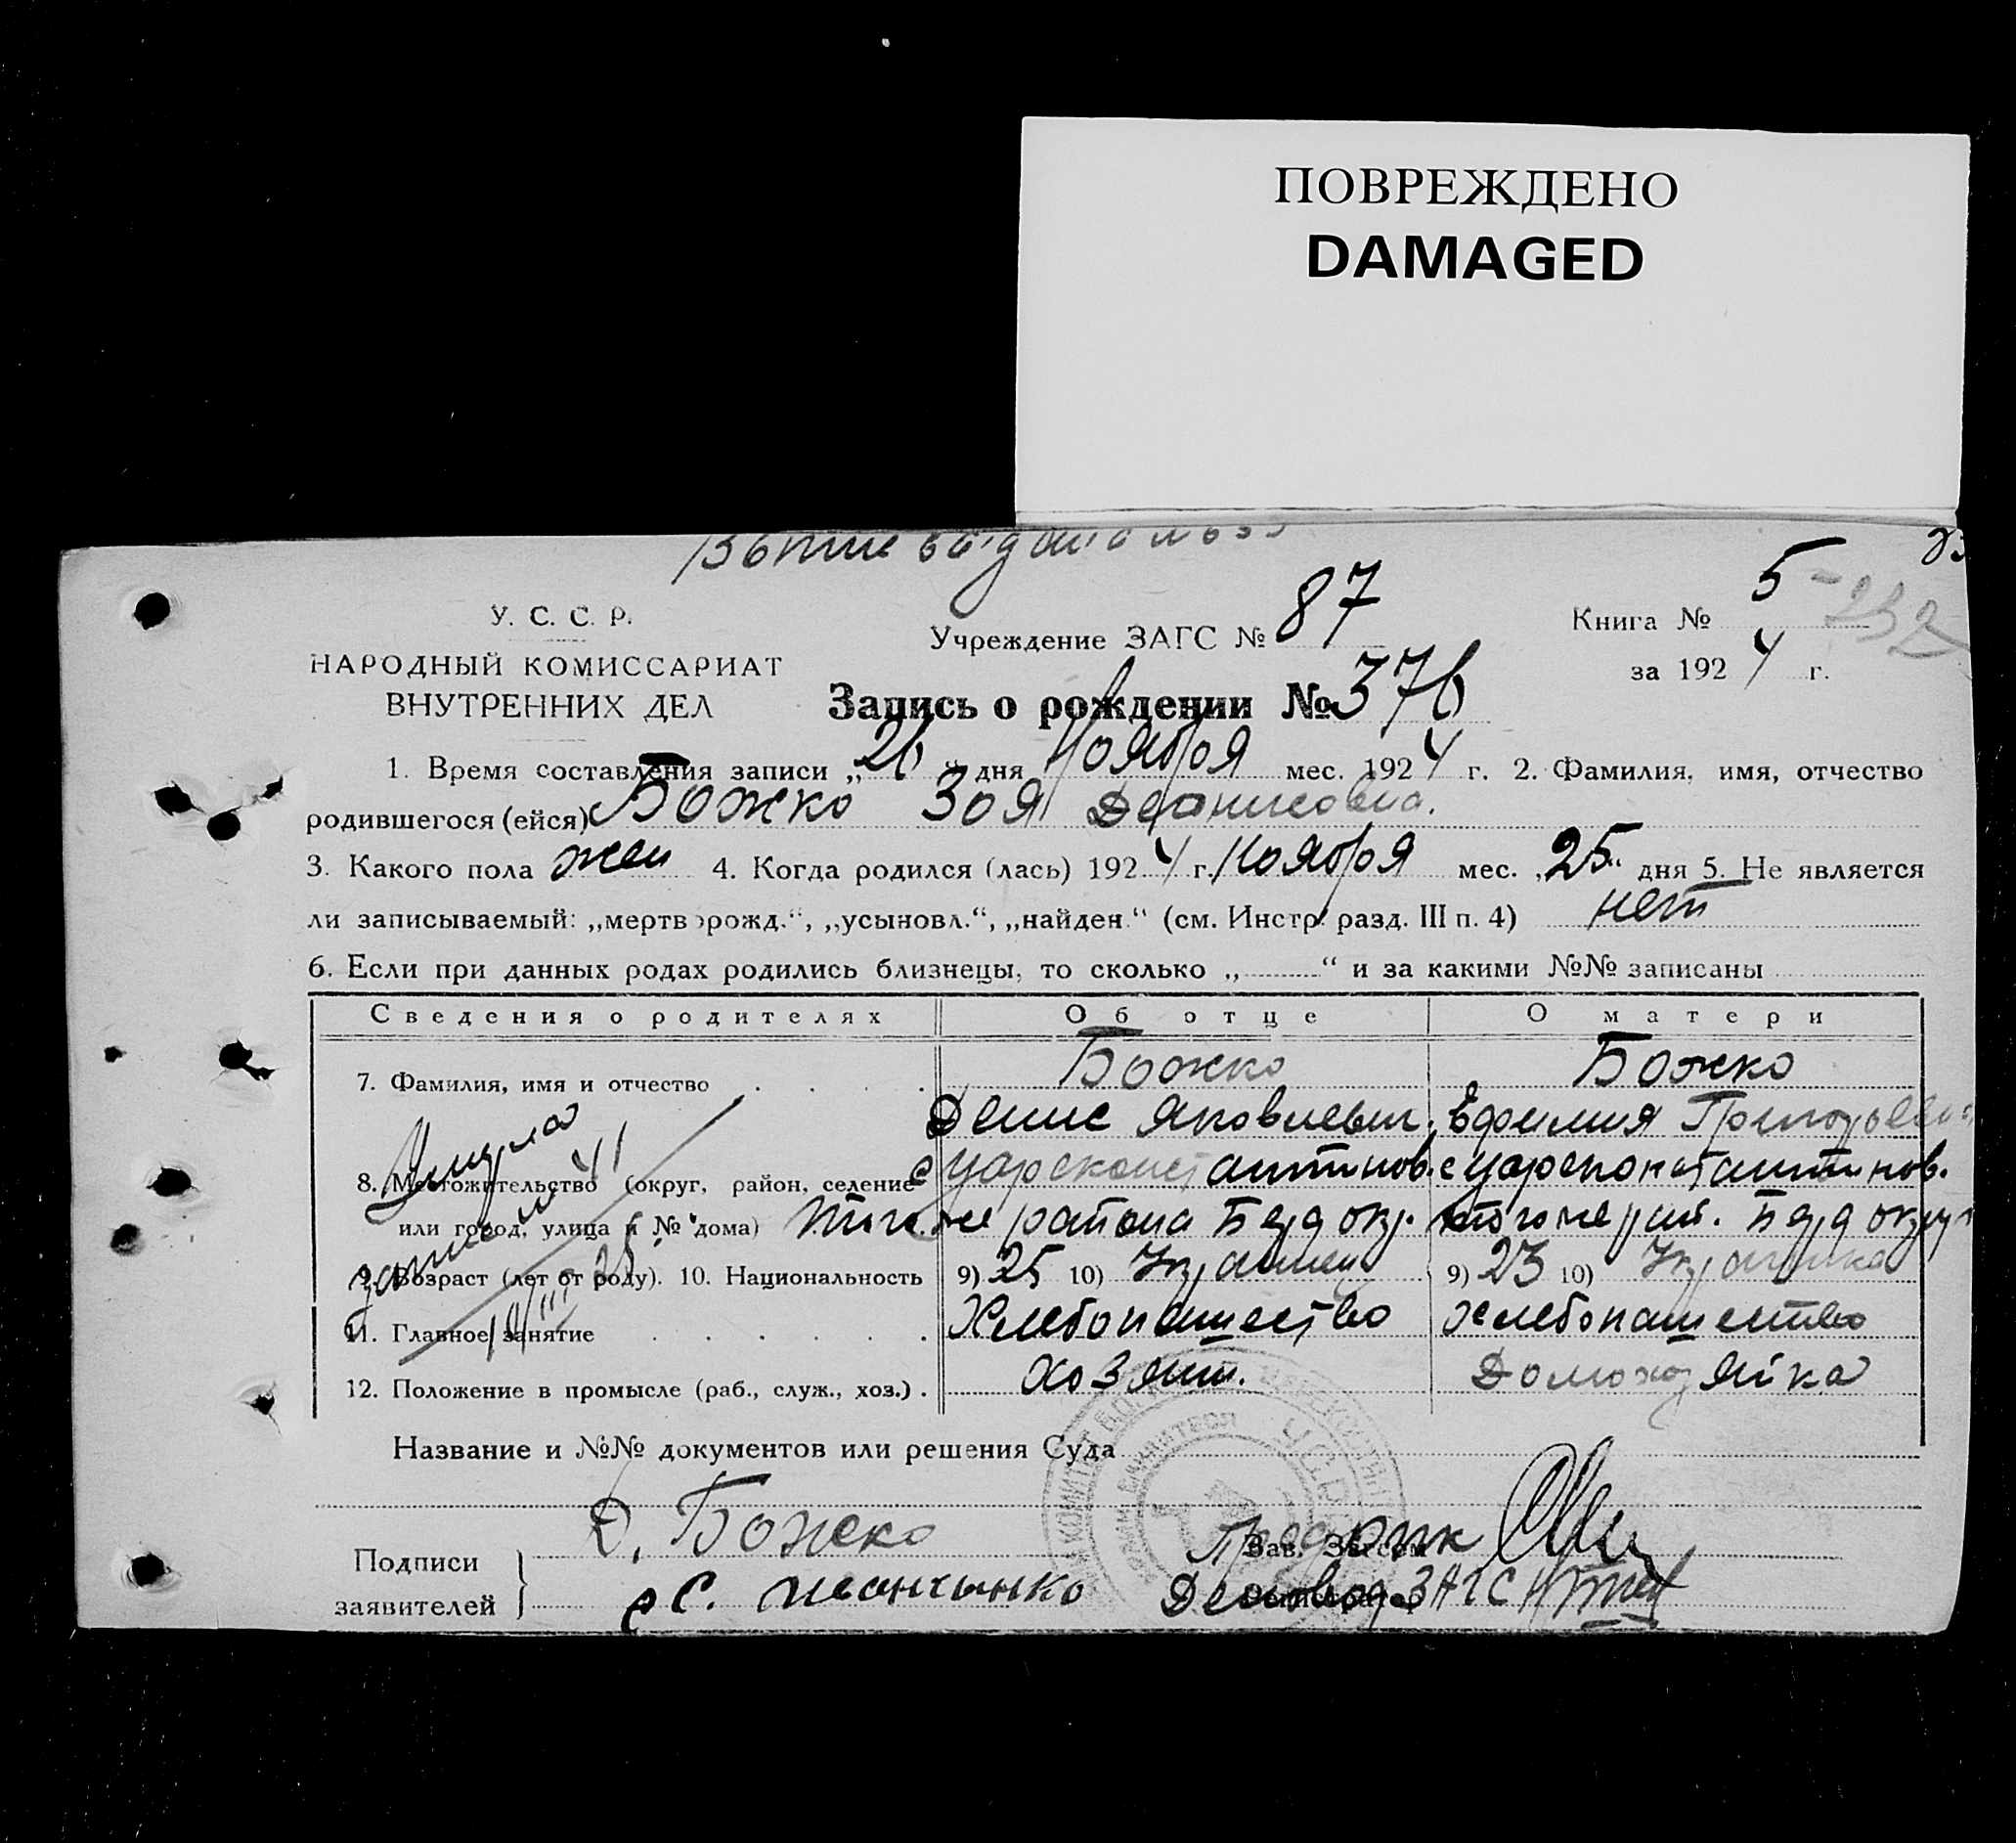 ПОВРЕЖДЕНО
DAMAGED
У. С. С. Р.
НАРОДНЫЙ КОМИССАРИАТ
ВНУТРЕННИХ ДЕЛ
Учреждение ЗАГС № 87
Книга № 5
232
за 1924 г.
Запись о рождении № 376
1. Время составления записи „26“ дня Ноября мес. 1924 г. 2. Фамилия, имя, отчество
родившегося (ейся) Божко Зоя Денисовна.
3. Какого пола жен 4. Когда родился (лась) 1924 г. Ноября мес. „25“ дня 5. Не является
ли записываемый: „мертворожд.“, „усыновл.“, „найден.“ (см. Инстр. разд. III п. 4) нет
6. Если при данных родах родились близнецы, то сколько „ “ и за какими №№ записаны
Сведения о родителях Об отце О матери
7. Фамилия, имя и отчество . . . . Божко Божко
Денис Яковлевич. Ефимия Григорьевна
Умерла
8. Местожительство (округ, район, селение с Цареконстантинов. с Цареконстантинов.
или город, улица и № дома) того же района Берд окр. того же рай. Берд округ
9. Возраст (лет от роду). 10. Национальность 9) 25 10) Украинец 9) 23 10) Украинка
11. Главное занятие . . . . . . Хлебопашество Хлебопашество
12. Положение в промысле (раб., служ., хоз.) . Хозяин. Домохозяйка
Название и №№ документов или решения Суда
Подписи
заявителей
Д. Божко
С. Иванченко
Зав. Загсом
Предрик
Деловод ЗАГС